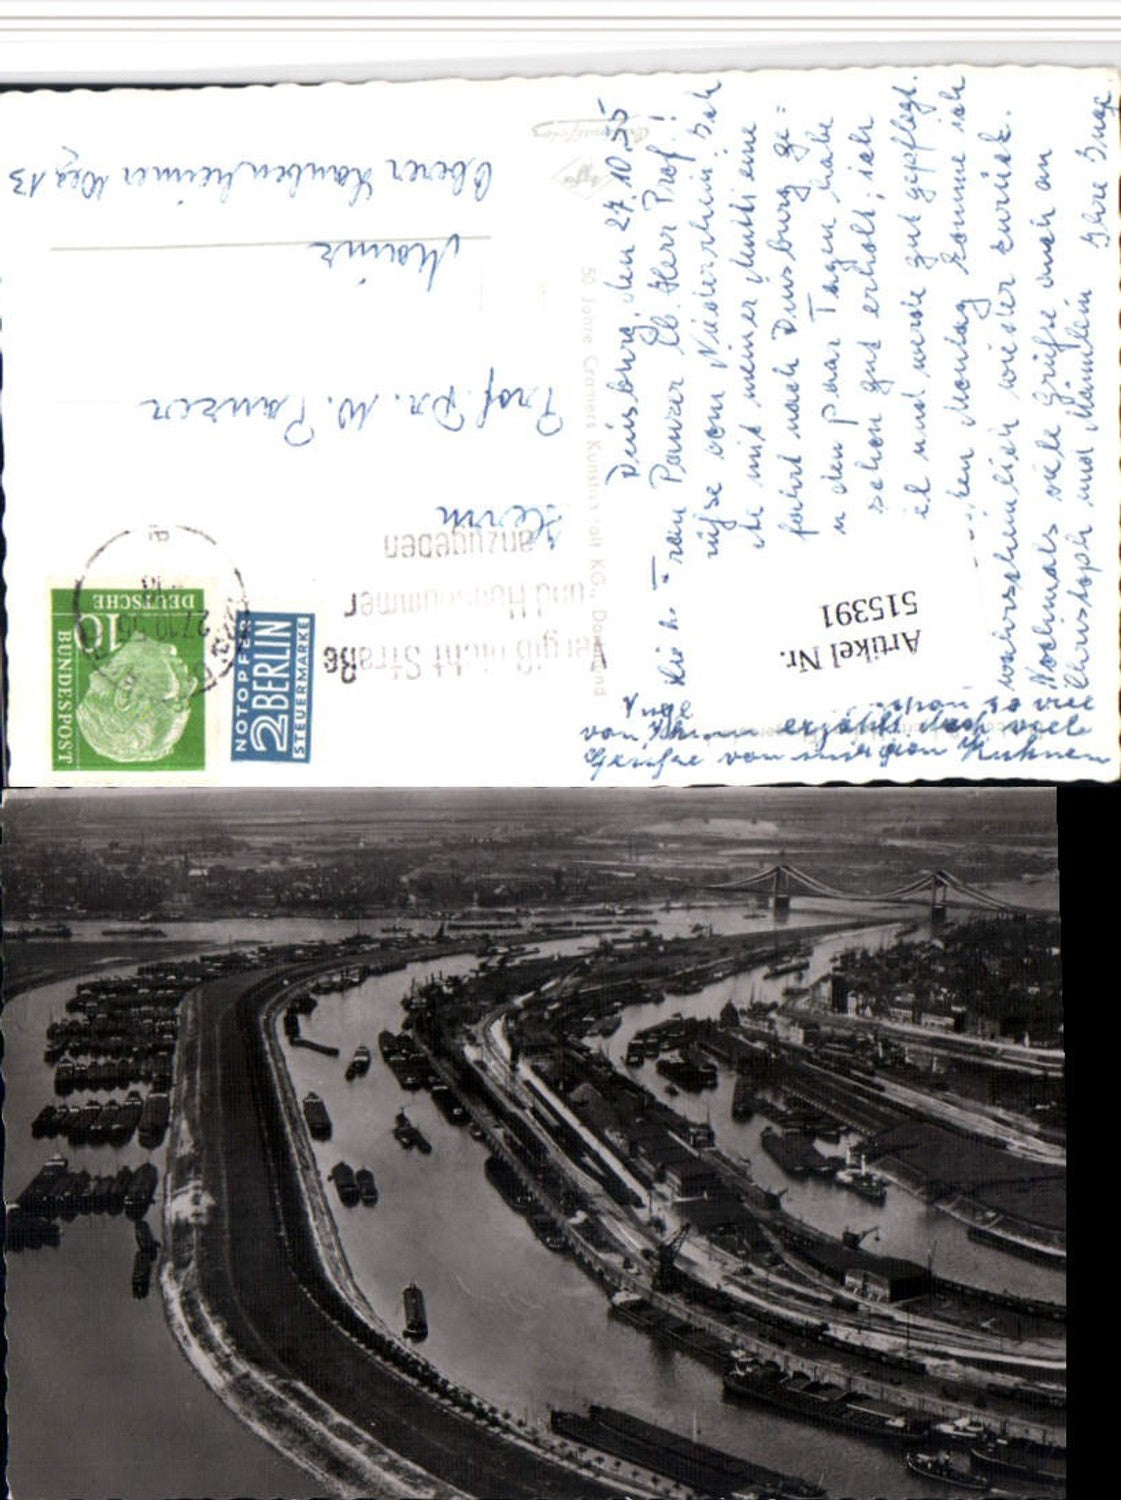 Duisburg, den 27.10.55
Frau Panzer lb. Herr Prof.!
vom Niederrhein. Ich
mit meiner Mutti eine
fahrt nach Duisburg ge=
den paar Tagen habe
schon gut erholt, ich
und wurde gut gepflegt.
Montag komme ich
wahrscheinlich wieder zurück.
Nochmals viele Grüße auch an
Christoph und Ihre Inge
schon so viel
von erzählt hat viele
Grüße von
Artikel Nr.
515391
50 Jahre Cramers Kunstanstalt KG., Dortmund
Vergiß nicht Straße
und Hausnummer
anzugeben
27.10.55
DEUTSCHE
BUNDESPOST
10
NOTOPFER
2 BERLIN
STEUERMARKE
Herrn
Prof. Dr. W. Panzer
Mainz
Oberer Laubenheimer Weg 13